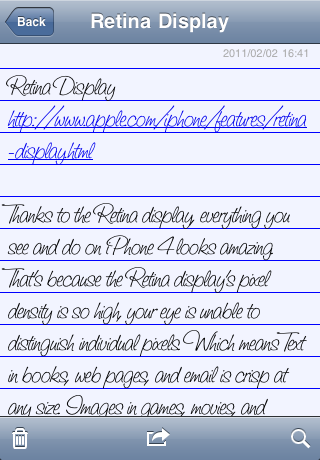 Back
Retina Display
2011/02/02 16:41
Retina Display
http://www.apple.com/iphone/features/retina
-display.html
Thanks to the Retina display, everything you
see and do on iPhone 4 looks amazing.
That's because the Retina display's pixel
density is so high, your eye is unable to
distinguish individual pixels. Which means Text
in books, web pages, and email is crisp at
any size. Images in games, movies, and